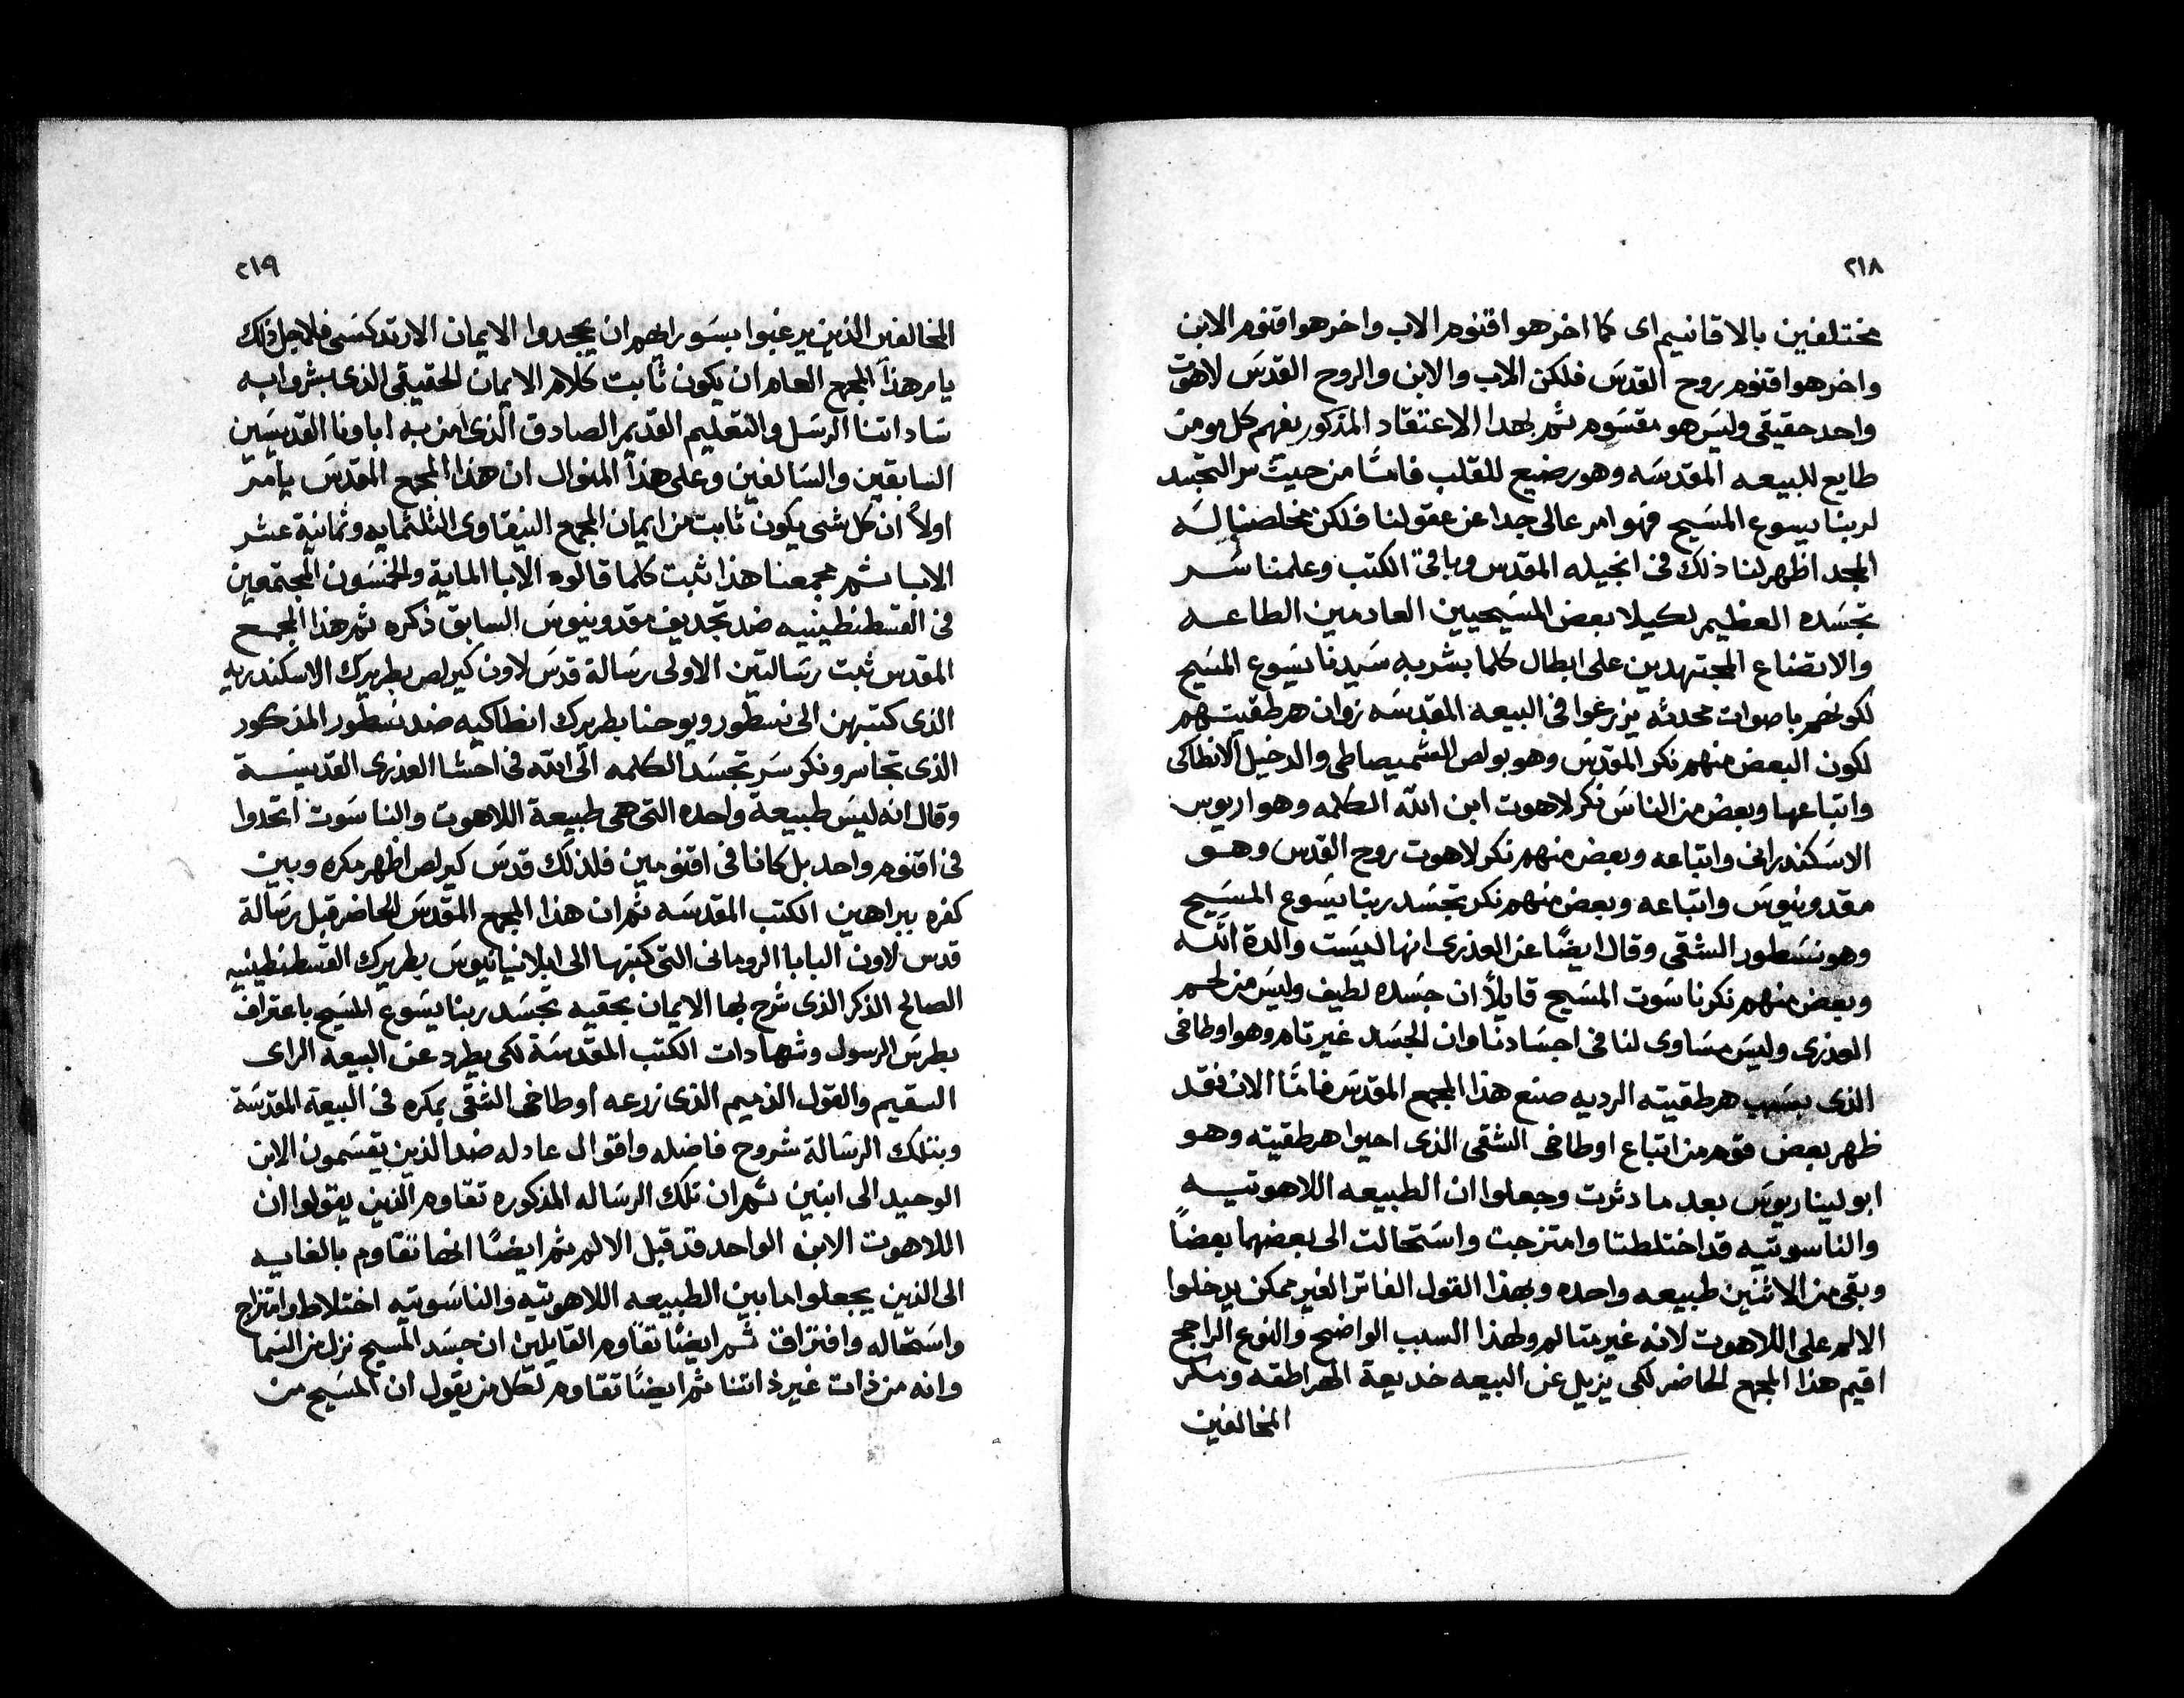 ٢١٨
مختلفين بالاقانيم اى كما اخر هو اقنوم الاب واخر هو اقنوم الابن
واخر هو اقنوم روح القدس فلكن الاب والابن والروح القدس لاهوت
واحد حقيقى وليس هو مقسوم ثم بهدا الاعتقاد المذكور يفهم كل مومن
طايع للبيعه المقدسه وهو رضيع للقلب فامًا من حيث سر التجسد
لربنا يسوع المسيح فهو امر عالى جدا عن عقولنا فلكن مخلصنا له
المجد اظهر لنا ذلك فى انجيله المقدس وباقى الكتب وعلمنا سر
تجسده العظيم لكيلا بعض المسيحيين العادمين الطاعه
والاتضاع المجتهدين على ابطال كلما بشر به سيدنا يسوع المسيح
لكونهم باصوات محدثه يزرغوا فى البيعه المقدسه زوان هرطقيتهم
لكون البعض منهم نكر المقدس وهو بولص الشميصاطى والدخيل الانطاكى
واتباعها وبعض من الناس نكر لاهوت ابن الله الكلمه وهو اريوس
الاسكندرانى واتباعه وبعض منهم نكر لاهوت روح القدس وهو
مقدونيوس واتباعه وبعض منهم نكر تجسد ربنا يسوع المسيح
وهو نسطور الشقى وقال ايضًا عن العذرى انها ليست والدة الله
وبعض منهم نكر ناسوت المسيح قايلاً ان جسده لطيف وليس من لحم
العذرى وليس مساوى لنا فى اجسادنا وان الجسد غير تام وهو اوطاخى
الذى بسبب هرطقيته الرديه صنع هذا المجمع المقدس فامًا الان فقد
ظهر بعض قوم من اتباع اوطاخى الشقى الذى احيوا هرطقيته وهو
ابوليناريوس بعد ما دثرت وجعلوا ان الطبيعه اللاهوتيه
والناسوتيه قد اختلطتا وامتزجت واستحالت الى بعضهما بعضًا
وبقى من الاثنين طبيعه واحده وبهذا القول الفاتر الغير ممكن يدخلوا
الالم على اللاهوت لانه غير متالم ولهذا السبب الواضح والنوع الراجح
اقيم هذا المجمع الحاضر لكى يزيل عن البيعه خديعة الهراطقه ومكر
المخالفين
٢١٩
المخالفين الذين يرغبوا بسو رايهم ان يجحدوا الايمان الارتدكسى فلاجل ذلك
يامر هذا المجمع العام ان يكون ثابت كلام الايمان الحقيقى الذى بشروا به
ساداتنا الرسل والتعليم القديم الصادق الذى امن به اباونا القديسين
السابقين والسالفين وعلى هذا المنوال ان هذا المجمع المقدس يامر
اولاً ان كل شى يكون ثابت من ايمان المجمع النيقاوى الثلثمايه وثمانية عشر
الابا ثم مجمعنا هذا ثبت كلما قالوه الابا الماية والخمسون المجتمعين
فى القسطنطينيه ضد تجديف مقدونيوس السابق ذكره ثم هذا المجمع
المقدس ثبت رسالتين الاولى رسالة قدس لاون كيرلص بطريرك الاسكندريه
الذى كتبهن الى نسطور ويوحنا بطريرك انطاكيه ضد نسطور المذكور
الذى تجاسر ونكر سر تجسد الكلمه الى الله فى احشا العذرى القديسة
وقال انه ليس طبيعة واحده التى هى طبيعة اللاهوت والناسوت اتحدوا
فى اقنوم واحد بل كانا فى اقنومين فلذلك قدس كيرلص اظهر مكره وبين
كفره ببراهين الكتب المقدسه ثم ان هذا المجمع المقدس الحاضر قبل رسالة
قدس لاون البابا الرومانى التى كتبها الى ابلانيانيوس بطريرك القسطنطينيه
الصالح الذكر الذى شرح بها الايمان بحقيه بجسد ربنا يسوع المسيح باعتراف
بطرس الرسول وشهادات الكتب المقدسة لكى يطرد عن البيعه الراى
السقيم والقول الذميم الذى زرعه اوطاخى الشقى بمكره فى البيعة المقدسة
وبتلك الرسالة شروح فاضله واقوال عادله ضد الذين يقسمون الابن
الوحيد الى ابنين ثم ان تلك الرساله المذكوره تقاوم الذين يقولوا ان
اللاهوت الابن الواحد قد قبل الالم ثم ايضًا انها تقاوم بالغايه
الى الذين يجعلوا ما بين الطبيعه اللاهوتيه والناسوتيه اختلاط وامتزاج
واستحاله وافتراق ثم ايضًا تقاوم القايلين ان جسد المسيح نزل من السما
وانه من ذات غير ذاتنا ثم ايضًا تقاوم لكل من يقول ان المسيح من